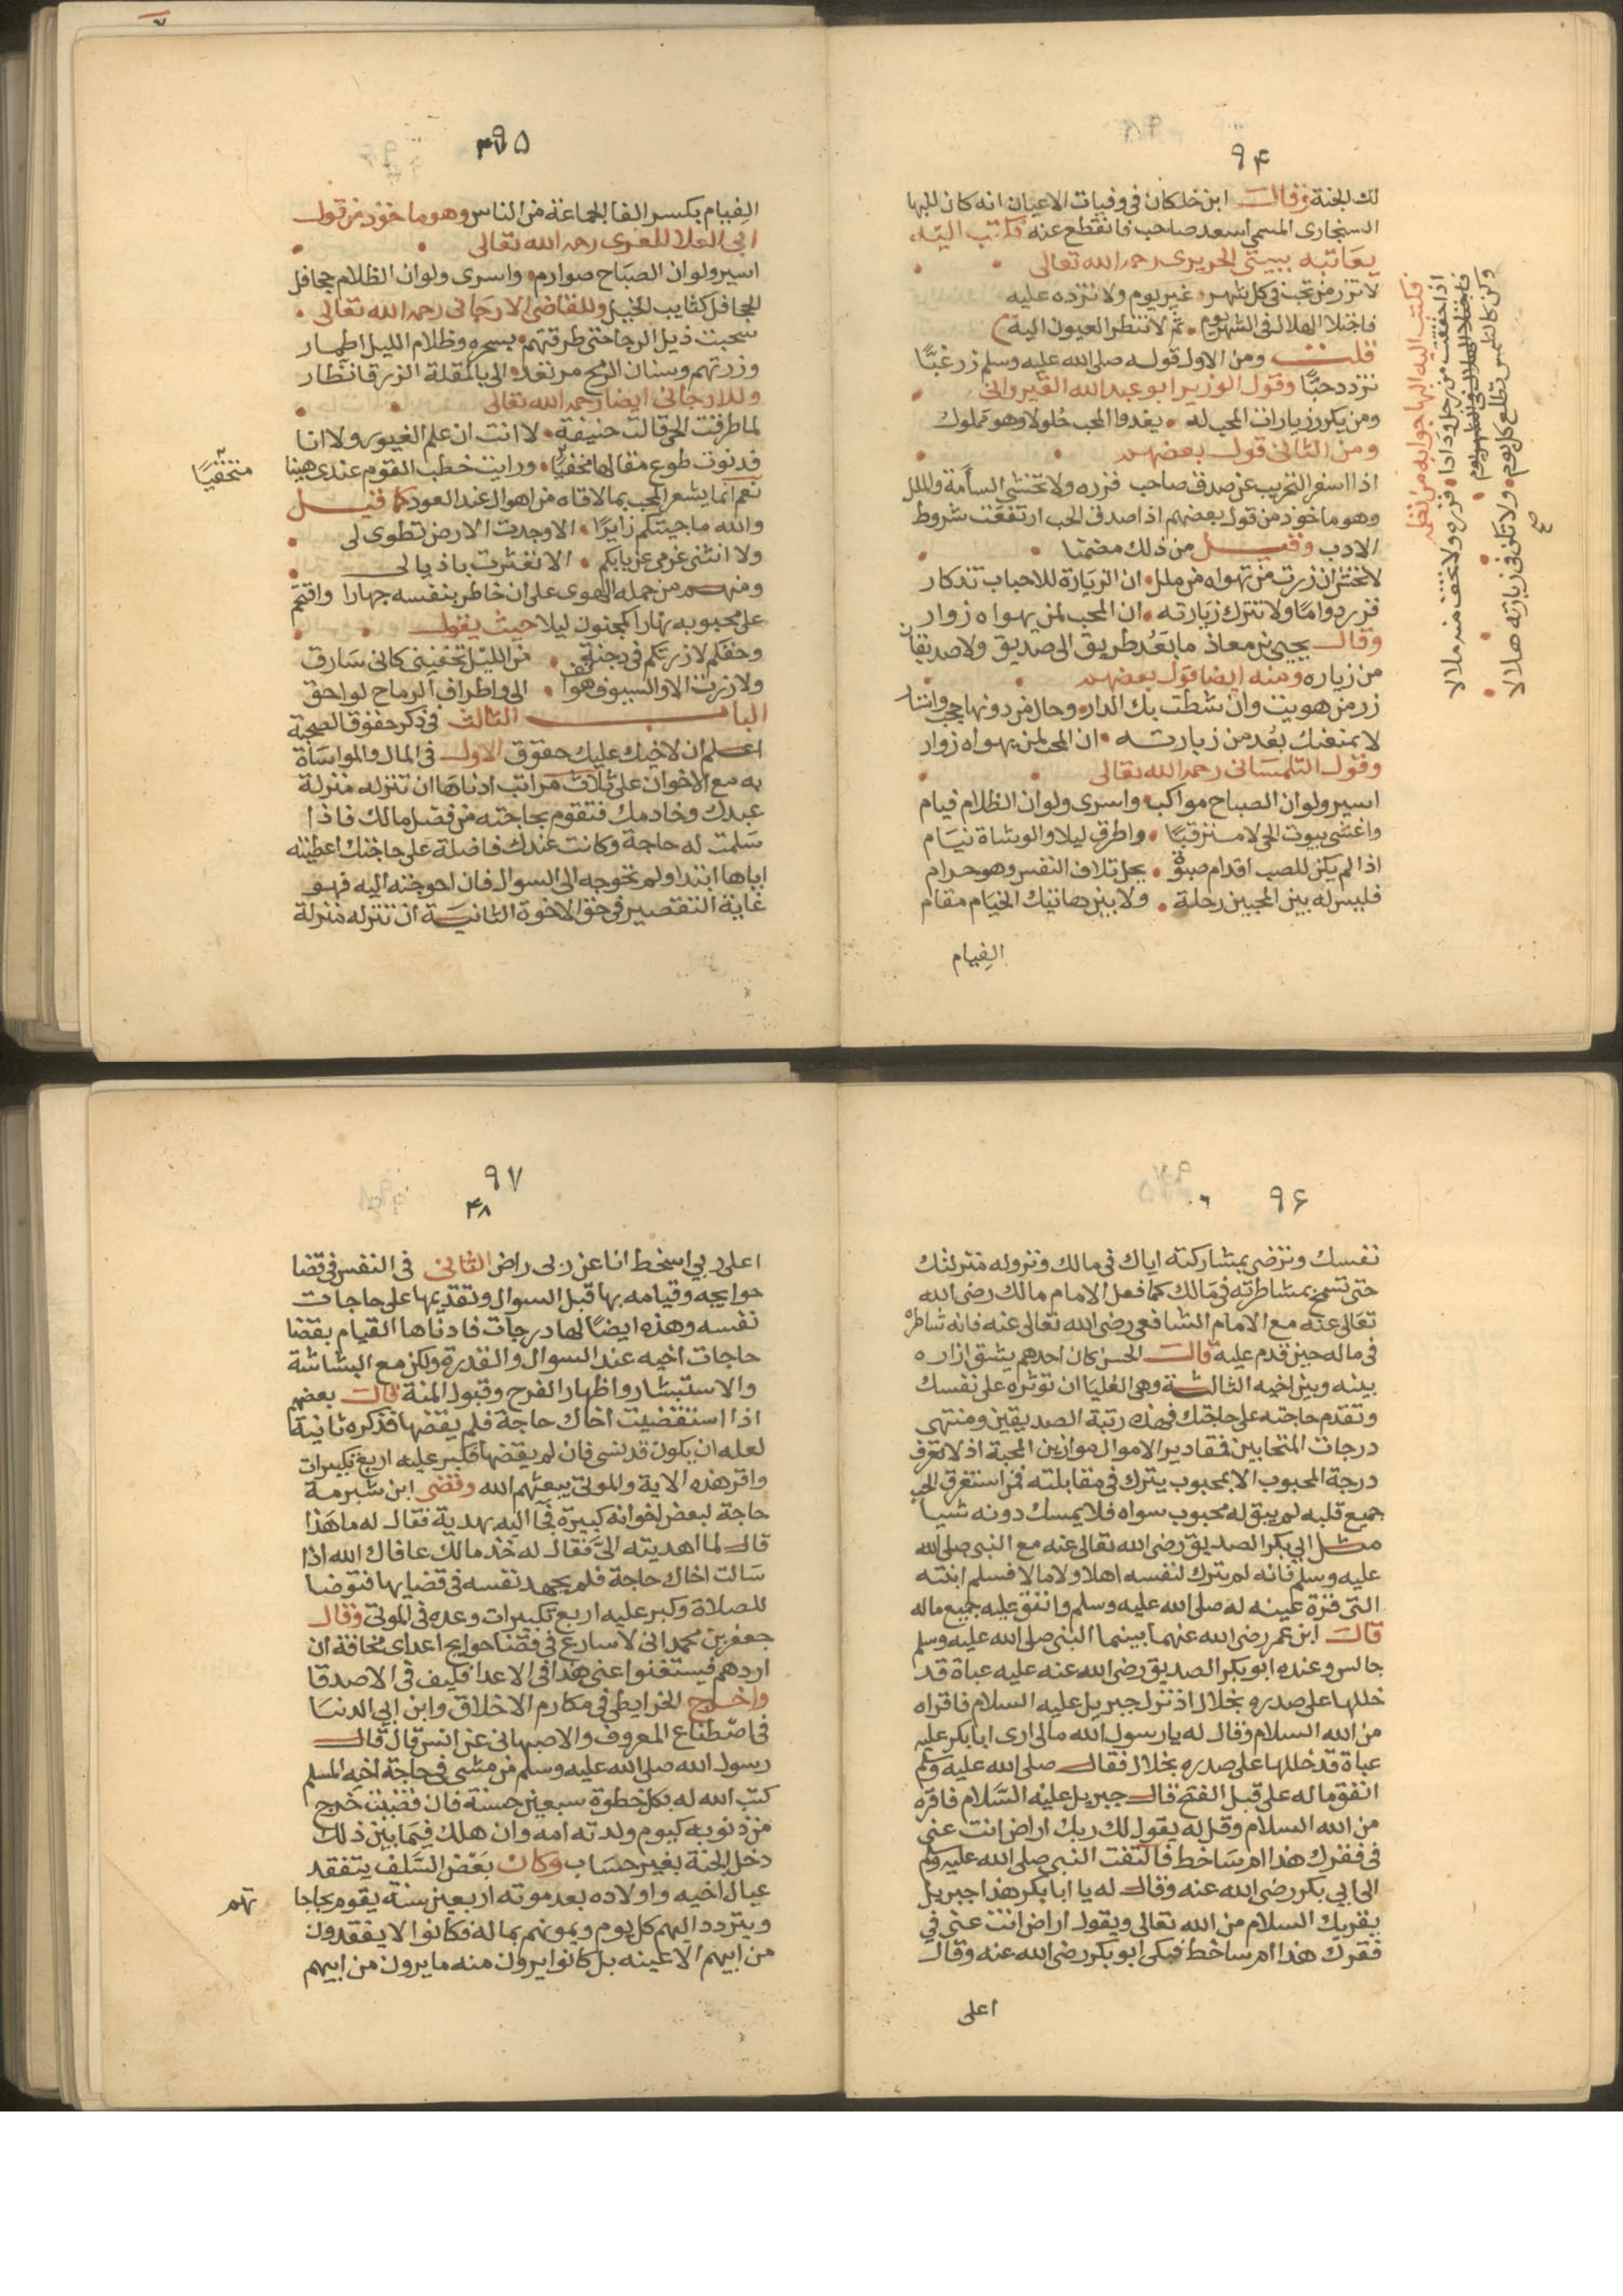 ٩۴
لك الجنة وقال ابن خلكان في وفيات الاعيان انه كان للبها
السنجاري المسمى اسعد صاحب فانقطع عنه فكتب اليه
يعاتبه ببيتي الحريري رحمه الله تعالى
لا تزر من تحب في كل شهر غير يوم ولا تزده عليه
فاجتلا الهلال في الشهر يوم ثم لا تنظر العيون اليه
قلت ومن الاول قوله صلى الله عليه وسلم زر غبًّا
تزدد حبًّا وقول الوزير ابو عبد الله القيرواني
ومن يكرر زيارات المحب له يغدوا المحب خلولا وهو مملوك
ومن الثاني قول بعضهم
اذا اسفر التجريب عن صدق صاحب فزره ولا تخشى السأمة والملل
وهو ماخوذ من قول بعضهم اذا صدق الحب ارتفعت شروط
الادب وقيل من ذلك مضمنا
لا تخش ان زرت من تهواه من ملل ان الزيارة للاحباب تذكار
فزر دوامًا ولا تترك زيارته ان المحب لمن يهواه زوار
وقال يحيى بن معاذ ما بَعُد طريق الى صديق ولا صد يقان
من زياره ومنه ايضا قول بعضهم
زر من هويت وان شطت بك الدار وحال من دونها حجب واستار
لا يمنعنك بُعد من زيارته ان المحب لمن يهواه زوار
وقول التلمساني رحمه الله تعالى
اسير ولو ان الصباح مواكب واسرى ولو ان الظلام فيام
واغشى بيوت الحي لا مترقبًا واطرق ليلا والوشاة نيام
اذا لم يكن للصب اقدام صبوة يحل تلاف النفس وهو حرام
فليس له بين المحبين رحلة ولا بين هاتيك الخيام مقام
الفيام
فكتب اليه البها جوابه من نظمه
اذا حققت من خل ودادا فزره ولا تخف منه ملالا
وكن كالشمس تطلع كل يوم ولا تكن في زيارته هلالا
صح
۹۵
الفِيام بكسر الفا الجماعة من الناس وهو ماخوذ من قول
ابي العلا المعري رحمه الله تعالى
اسير ولو ان الصباح صوارم واسرى ولو ان الظلام جحافل
الجحافل كتايب الخيل وللقاضي الارجاني رحمه الله تعالى
سحبت ذيل الرجا حتى طرقتهم بسحره وظلام الليل اطمار
وزرتهم وسنان الرمح مرتعد الي بالمقلة الزرقا نظار
وللارجاني ايضا رحمه الله تعالى
لما طرقت الحي قالت خيفة لا انت ان علم الغيور ولا انا
فدنوت طوع مقالها مخفيًا ورايت خطب القوم عندي هينا
متخفيًا
نعم انما يشعر المحب بما لاقاه من اهوال عند العود كما قيل
والله ما جيتكم زايرًا الا وجدت الارض تطوى لي
ولا انثنى عزمي عن بابكم الا تعثرت باذيالي
ومنهم من حمله الهوى على ان خاطر بنفسه جهارا واقتحم
على محبوبه نهارا كمجنون ليلا حيث يقول
وحقكم لا زرتكم في دجنة من الليل تخفيني كاني سارق
ولا زرت الا والسيوف هواتف الى واطراف الرماح لواحق
الباب الثالث في ذكر حقوق الصحبة
اعلم ان لاخيك عليك حقوق الاول في المال والمواساة
به مع الاخوان على ثلاث مراتب ادناها ان تنزله منزلة
عبدك وخادمك فتقوم بحاجته من فضل مالك فاذا
سلمت له حاجة وكانت عندك فاضلة على حاجتك اعطيته
اياها ابتدا ولم تحوجه الى السوال فان احوجته اليه فهو
غاية التقصير في حق الاخوة الثانية ان تنزله منزلة
٩۶
نفسك وترضى بمشاركته اياك في مالك ونزوله منزلتك
حتى تسمح بمشاطرته في مالك كما فعل الامام مالك رضي الله
تعالى عنه مع الامام الشافعي رضي الله تعالى عنه فانه شاطره
في ماله حين قدم عليه قال الحسن كان احدهم يشق ازاره
بينه وبين اخيه الثالثة وهي العليا ان توثره على نفسك
وتقدم حاجته على حاجتك فهذه رتبة الصديقين ومنتهى
درجات المتحابين فمقادير الاموال موازين المحبة اذ لا تعرف
درجة المحبوب الا بمحبوب يترك في مقابلته فمن استغرق الحب
جميع قلبه لم يبق له محبوب سواه فلا يمسك دونه شيا
مثل ابي بكر الصديق رضي الله تعالى عنه مع النبي صلى الله
عليه وسلم فانه لم يترك لنفسه اهلا ولا مالا فسلم ابنته
التي قرة عينه له صلى الله عليه وسلم وانفق عليه جميع ماله
قال ابن عمر رضي الله عنهما بينما النبي صلى الله عليه وسلم
جالس وعنده ابو بكر الصديق رضي الله عنه عليه عباة قد
خللها على صدره بخلال اذ نزل جبريل عليه السلام فاقراه
من الله السلام وقال له يا رسول الله مالي ارى ابا بكر عليه
عباة قد خللها على صدره بخلال فقال صلى الله عليه وسلم
انفق ماله على قبل الفتح قال جبريل عليه السلام فاقره
من الله السلام وقل له يقول لك ربك اراض انت عني
في فقرك هذا ام ساخط فالتفت النبي صلى الله عليه وسلم
الى ابي بكر رضي الله عنه وقال له يا ابا بكر هذا جبريل
يقريك السلام من الله تعالى ويقول اراض انت عني في
فقرك هذا ام ساخط فبكى ابو بكر رضي الله عنه وقال
اعلى
٩٧
۴۸
اعلى ربي اسخط انا عن ربي راض الثاني في النفس في قضا
حوايجه وقيامه بها قبل السوال وتقديمها على حاجات
نفسه وهذه ايضًا لها درجات فادناها القيام بقضا
حاجات اخيه عند السوال والقدرة ولكن مع البشاشة
والاستبشار واظهار الفرح وقبول المنة قال بعضهم
اذا استقضيت اخاك حاجة فلم يقضها فذكره ثانية
لعله ان يكون قد نسي فان لم يقضها فكبر عليه اربع تكبيرات
واقر هذه الاية والموتى يبعثهم الله وقضى ابن شبرمة
حاجة لبعض اخوانه كبيرة فجآ اليه بهدية فقال له ما هذا
قال لما اهديته الي فقال له خذ مالك عافاك الله اذا
سالت اخاك حاجة فلم يجهد نفسه في قضايها فتوضا
للصلاة وكبر عليه اربع تكبيرات وعده في الموتى وقال
جعفر بن محمد اني لاسارع في قضا حوايج اعداي مخافة ان
اردهم فيستغنوا عني هذا في الاعدا فكيف في الاصدقا
واخرج الخرايطي في مكارم الاخلاق وابن ابي الدنيا
في اصطناع المعروف والاصبهاني عن انس قال قال
رسول الله صلى الله عليه وسلم من مشى في حاجة اخيه المسلم
كتب الله له بكل خطوة سبعين حسنة فان قضيت خرج
من ذنوبه كيوم ولدته امه وان هلك فيما بين ذلك
دخل الجنة بغير حساب وكان بعض السلف يتفقد
عيال اخيه واولاده بعد موته اربعين سنة يقوم بحاجا
تهم
ويتردد اليهم كل يوم ويمونهم بماله فكانوا لا يفقدون
من ابيهم الا عينه بل كانوا يرون منه ما يرون من ابيهم